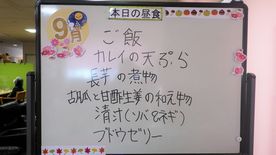 本日の昼食
9月
ご飯
カレイの天ぷら
長芋の煮物
胡瓜と甘酢生姜の和え物
清汁(ソバ&ネギ)
ブドウゼリー